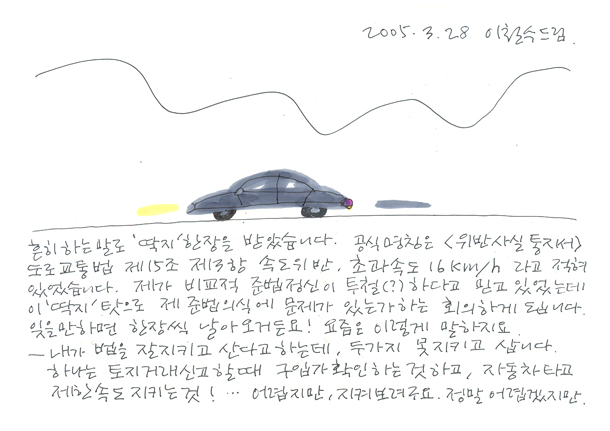 2005. 3. 28 이철수드림.
흔히하는말로 '딱지' 한장을 받았습니다. 공식명칭은 <위반사실 통지서>
도로교통법 제15조 제3항 속도위반. 초과속도 16km/h 라고 적혀
있었습니다. 제가 비교적 준법정신이 투철(?)하다고 믿고 있었는데
이 '딱지' 탓으로 제 준법의식에 문제가 있는가하는 회의하게 됩니다.
잊을만하면 한장씩 날아오거든요! 요즘은 이렇게 말하지요.
— 내가 법을 잘지키고 산다고하는데, 두가지 못지키고 삽니다.
하나는 토지거래신고할때 구입가확인하는것하고, 자동차타고
제한속도 지키는것! … 어렵지만, 지켜보려구요. 정말 어렵겠지만.